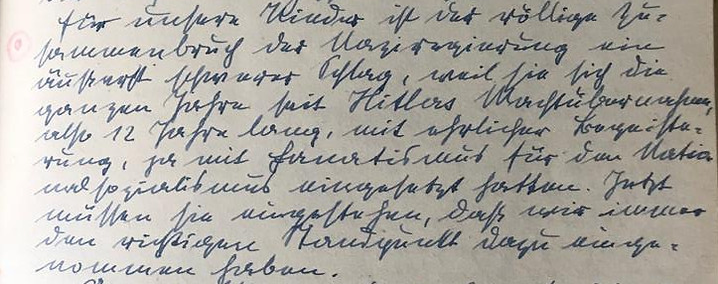 Für unsere Kinder ist der völlige Zu-
sammenbruch der Naziregierung ein
äußerst schwerer Schlag, weil sie sich die
ganzen Jahre seit Hitlers Machtübernahme,
also 12 Jahre lang, mit ehrlicher Begeiste-
rung, ja mit Fanatismus für den Natio
nalsozialismus eingesetzt hatten. Jetzt
müssen sie eingestehen, daß wir immer
den richtigen Standpunkt dazu einge-
nommen haben.